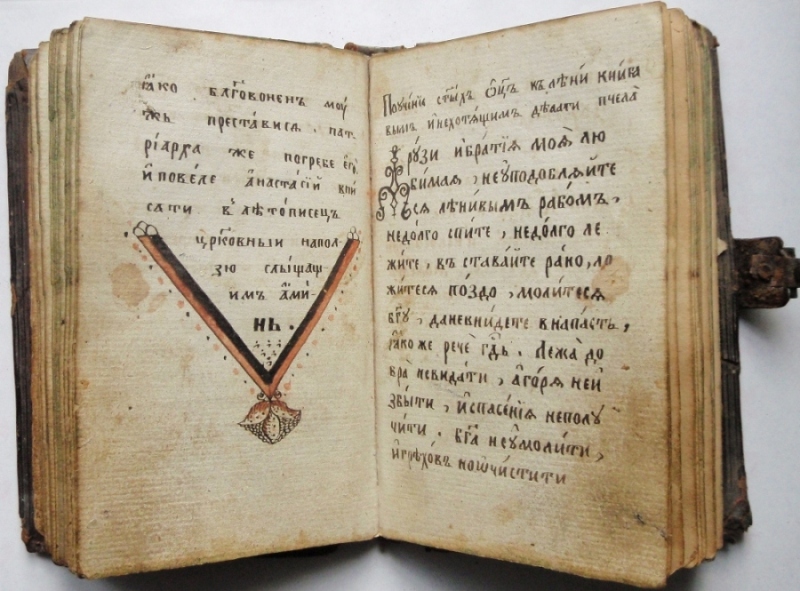 ꙗ҆́ко бл҃говоненъ моу
жъ преставися. пат
рїа́рхъ же погребе є҆го̀
и҆ повелѐ а҆настасїй впи
сати в лѣтописецъ
цр҃ковныи напол
зю слышащ
имъ а҆ми́
нь.
Поучнїи ст҃ыхъ ѻ҆ц҃ъ къ лѣни
вымъ и҆ нехотящимъ дѣлати пчела
Дрꙋзи и҆ бра́тїѧ моѧ̀ лю
бимаѧ, неꙋподоблѧ́йте
сѧ лѣни́вымъ рабо́мъ,
недо́лго спи́те, недо́лго ле
жи́те, въ става́йте ра́но, ло
жи́тесѧ по́здо, моли́тесѧ
бг҃ꙋ, даневни́дете внапа́сть,
ꙗ҆́коже речѐ гд҇ь. Лежа̀ до
бра̀ невида́ти, а҆го́рѧ не
збы́ти, и҆спасе́нїѧ неполꙋ
чи́ти. бг҃а неꙋмоли́ти,
и҆грѣхо́въ неѡ҆чи́стити